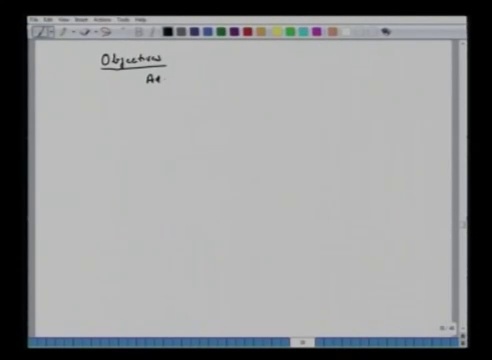 File Edit View Insert Actions Tools Help
Objectives
Ae